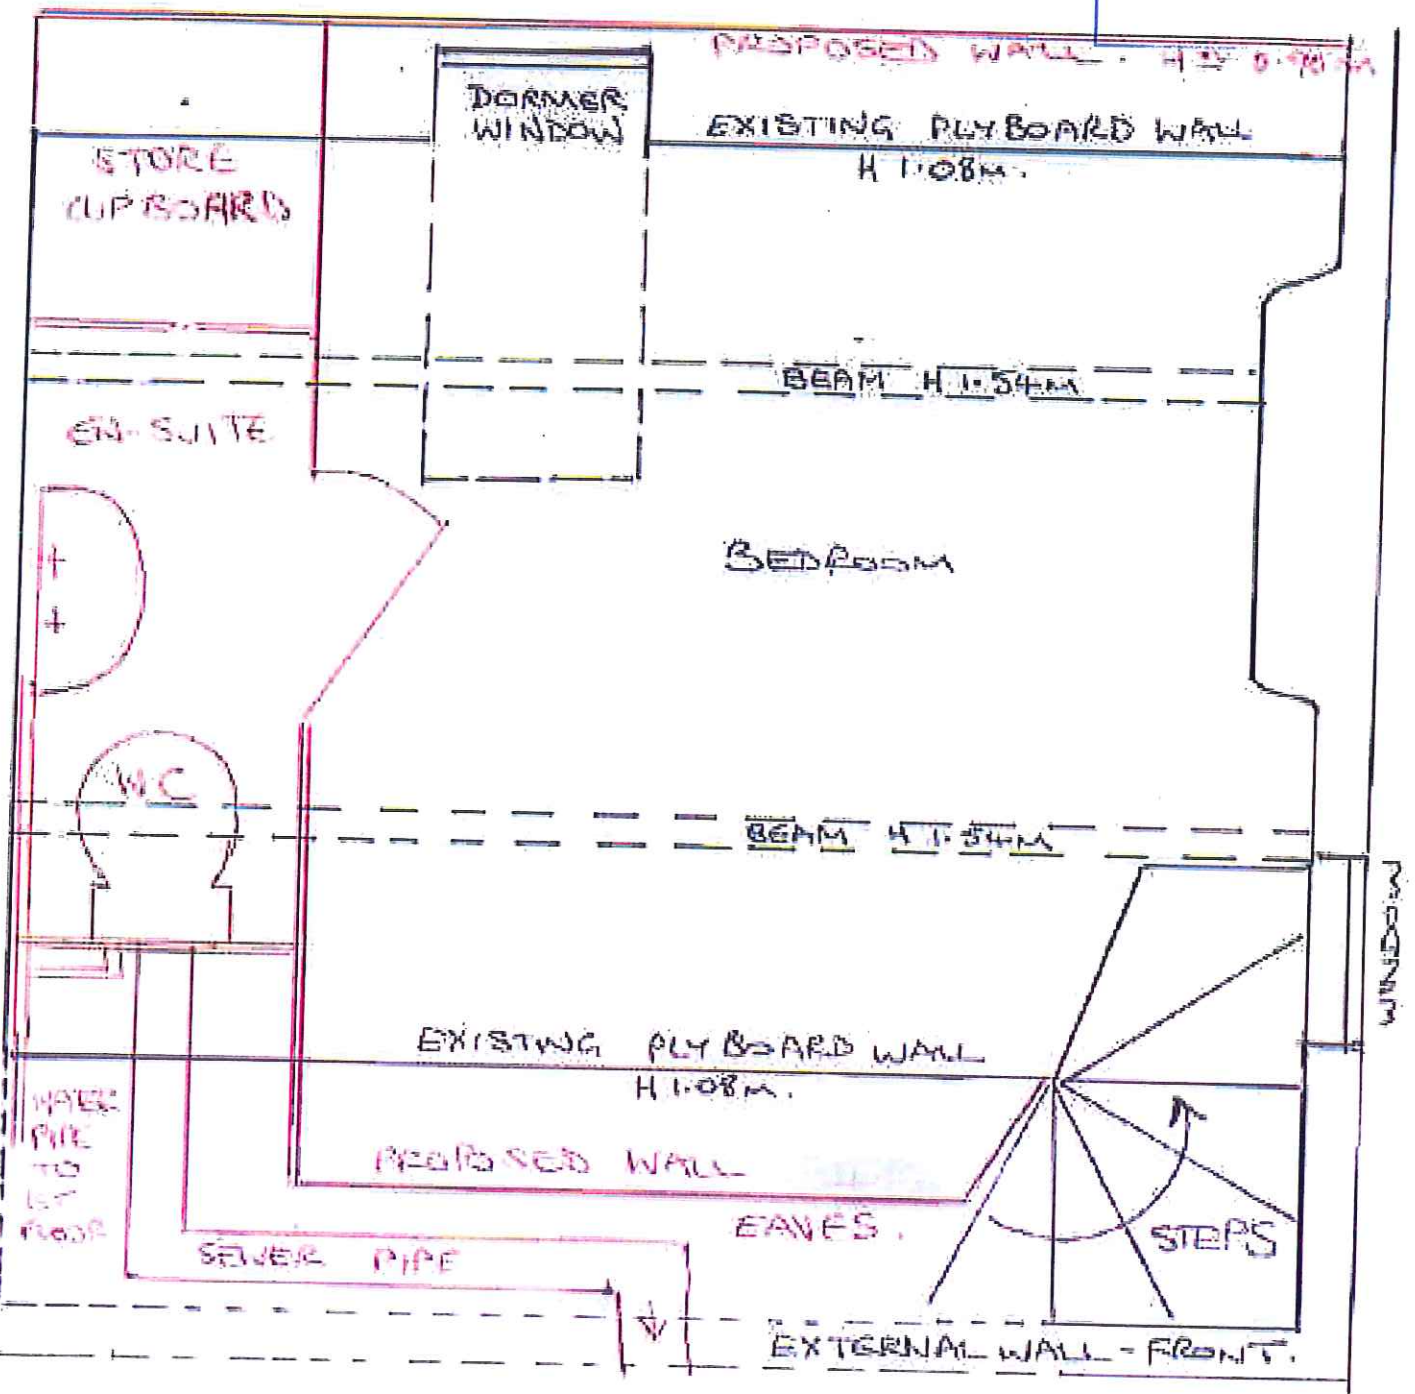 PROPOSED WALL. H 0.98M
DORMER
WINDOW
EXISTING PLYBOARD WALL
H 1.08M.
STORE
CUPBOARD
BEAM H 1.54M
EN-SUITE
BEDROOM
WC
BEAM H 1.54M
WINDOW
EXISTING PLYBOARD WALL
H 1.08M.
WATER
PIPE
TO
1ST
FLOOR
PROPOSED WALL
EAVES.
STEPS
SEWER PIPE
EXTERNAL WALL - FRONT.